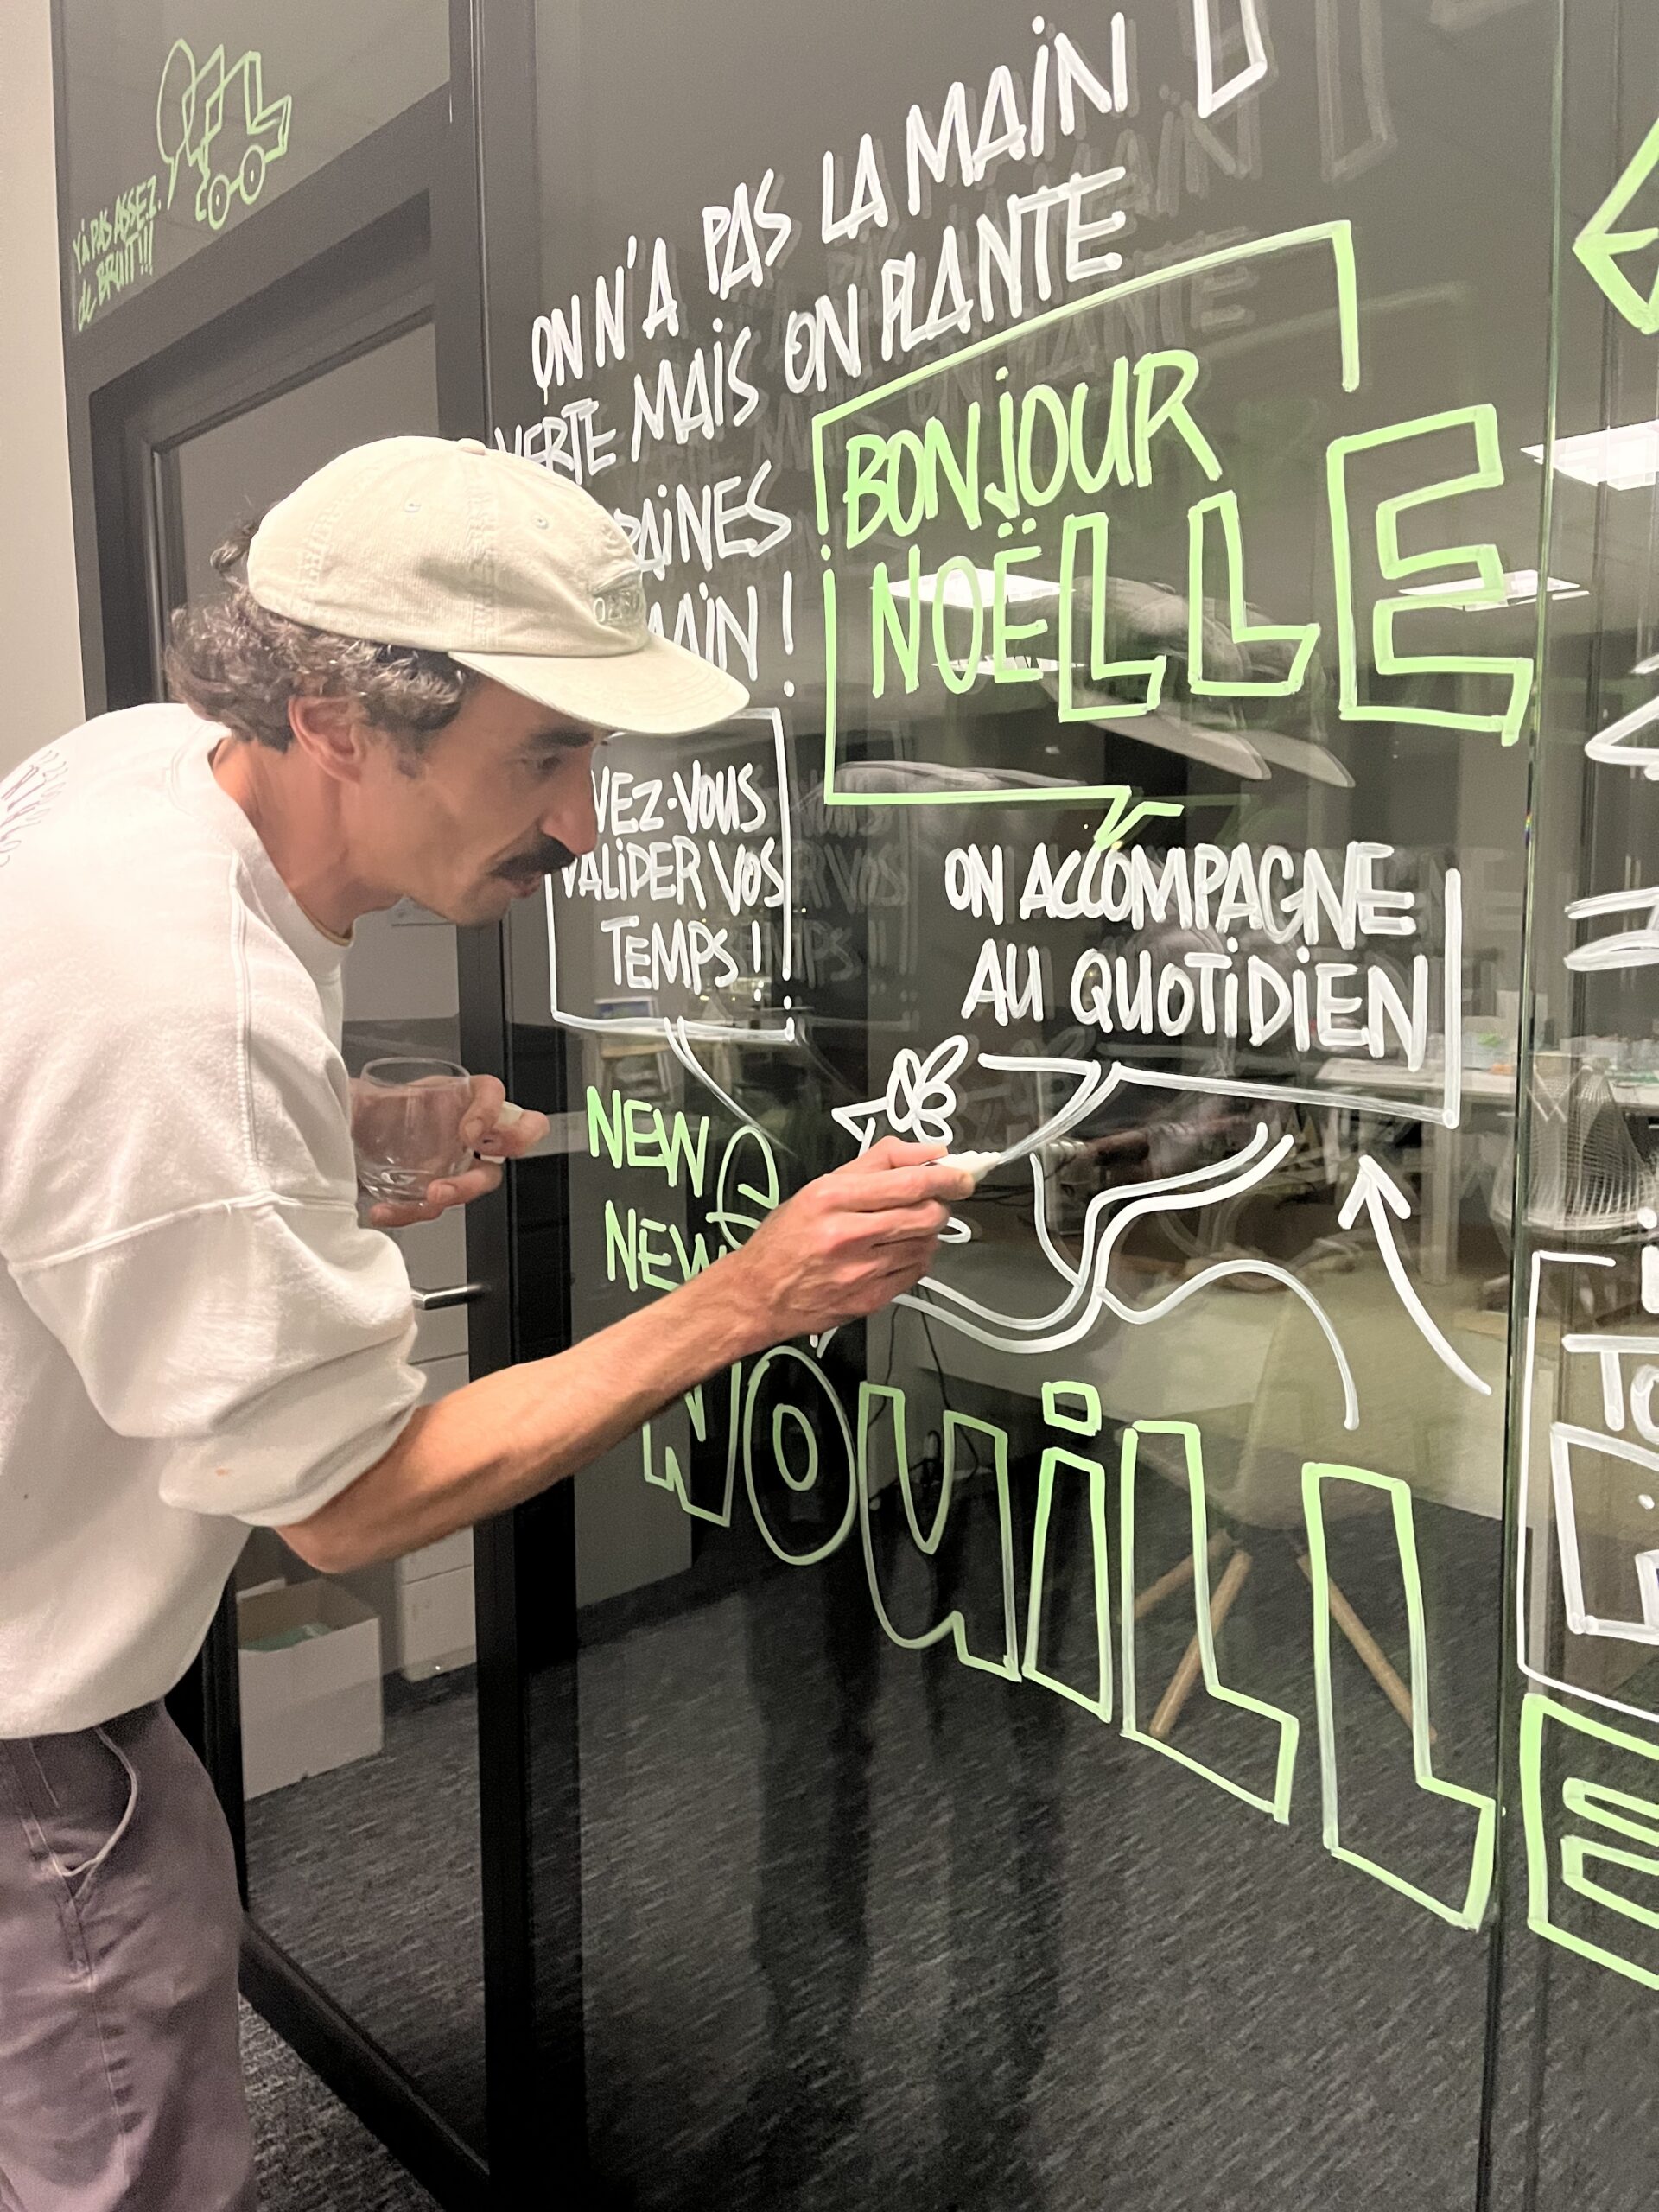 Y'A PAS ASSEZ.
de BRUIT!!!
ON N'A PAS LA MAIN
VERTE MAIS ON PLANTE
MAIN !
BONJOUR
NOËLLE
VEZ-VOUS
VALIDER VOS
TEMPS !
ON ACCOMPAGNE
AU QUOTIDIEN
NEW
NEW
NOUILLE